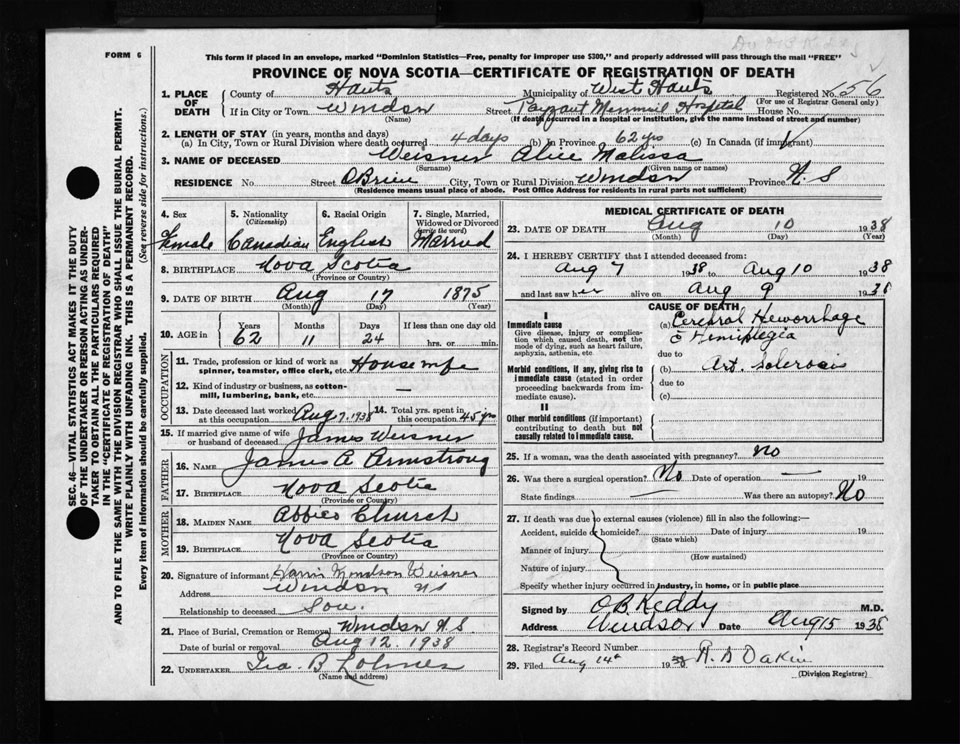 FORM 6
This form if placed in an envelope, marked "Dominion Statistics—Free, penalty for improper use $300," and properly addressed will pass through the mail "FREE"
PROVINCE OF NOVA SCOTIA—CERTIFICATE OF REGISTRATION OF DEATH
1. PLACE OF DEATH County of Hants Municipality of West Hants Registered No. 656
(For use of Registrar General only)
If in City or Town Windsor Street Payzant Memorial Hospital House No.
(Name) (If death occurred in a hospital or institution, give the name instead of street and number)
2. LENGTH OF STAY (in years, months and days)
(a) In City, Town or Rural Division where death occurred 4 days (b) In Province 62 yrs (c) In Canada (if immigrant)
3. NAME OF DECEASED Weisner Alice Malissa
(Surname) (Given name or names)
RESIDENCE No. Street O'Brien City, Town or Rural Division Windsor Province N.S
(Residence means usual place of abode. Post Office Address for residents in rural parts not sufficient)
4. Sex Female
5. Nationality (Citizenship) Canadian
6. Racial Origin English
7. Single, Married, Widowed or Divorced (write the word) Married
8. BIRTHPLACE Nova Scotia
(Province or Country)
9. DATE OF BIRTH Aug 17 1875
(Month) (Day) (Year)
10. AGE in Years 62 Months 11 Days 24 If less than one day old hrs. or min.
OCCUPATION
11. Trade, profession or kind of work as spinner, teamster, office clerk, etc. Housewife
12. Kind of industry or business, as cotton-mill, lumbering, bank, etc. —
13. Date deceased last worked at this occupation Aug 7, 1938
14. Total yrs. spent in this occupation 45 yrs
15. If married give name of wife or husband of deceased James Weisner
FATHER
16. NAME James A Armstrong
17. BIRTHPLACE Nova Scotia
(Province or Country)
MOTHER
18. MAIDEN NAME Church
19. BIRTHPLACE Nova Scotia
(Province or Country)
20. Signature of informant Weisner
Address Windsor NS
Relationship to deceased Son.
21. Place of Burial, Cremation or Removal Windsor N.S.
Date of burial or removal Aug 12, 1938
22. UNDERTAKER Ira. B
(Name and address)
MEDICAL CERTIFICATE OF DEATH
23. DATE OF DEATH Aug 10 1938
(Month) (Day) (Year)
24. I HEREBY CERTIFY that I attended deceased from:
Aug 7 1938 to Aug 10 1938
and last saw her alive on Aug 9 1938
CAUSE OF DEATH
I
Immediate cause
Give disease, injury or complication which caused death, not the mode of dying, such as heart failure, asphyxia, asthenia, etc
(a) Cerebral Hemorrhage
c̄ Hemiplegia
due to
Morbid conditions, if any, giving rise to immediate cause (stated in order proceeding backwards from immediate cause).
(b) Art. Sclerosis
due to
(c)
II
Other morbid conditions (if important) contributing to death but not causally related to immediate cause.
25. If a woman, was the death associated with pregnancy? No
26. Was there a surgical operation? No Date of operation — 19
State findings — Was there an autopsy? No
27. If death was due to external causes (violence) fill in also the following:—
Accident, suicide or homicide? Date of injury 19
(State which)
Manner of injury
(How sustained)
Nature of injury
Specify whether injury occurred in industry, in home, or in public place
Signed by O.B. Keddy M.D.
Address Windsor Date Aug 15 1938
28. Registrar's Record Number
29. Filed Aug 14th 1938 Oakin
(Division Registrar)
SEC. 46—VITAL STATISTICS ACT MAKES IT THE DUTY
OF THE UNDERTAKER OR PERSON ACTING AS UNDER-
TAKER TO OBTAIN ALL THE PARTICULARS REQUIRED
IN THE "CERTIFICATE OF REGISTRATION OF DEATH"
AND TO FILE THE SAME WITH THE DIVISION REGISTRAR WHO SHALL ISSUE THE BURIAL PERMIT.
WRITE PLAINLY WITH UNFADING INK. THIS IS A PERMANENT RECORD.
Every item of information should be carefully supplied. (See reverse side for instructions.)